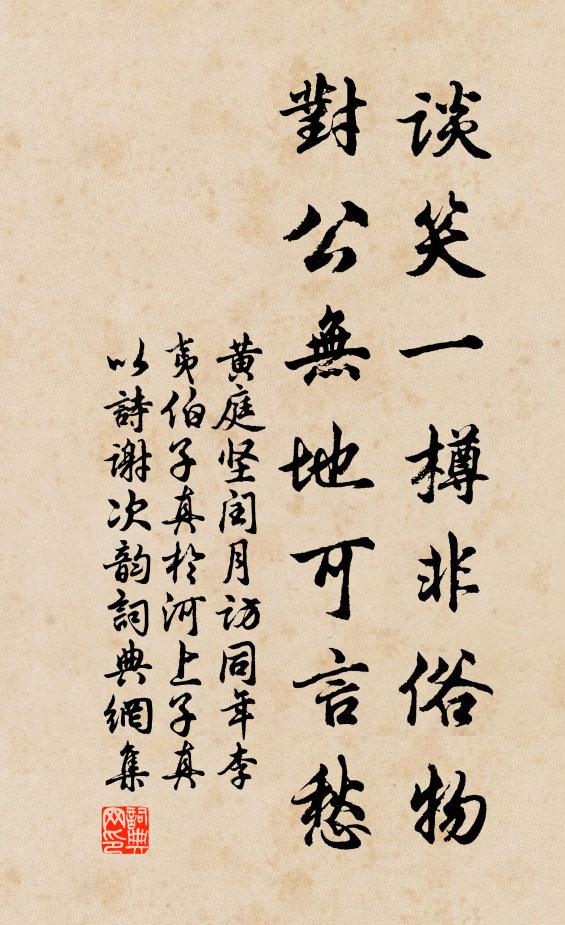 谈笑一樽非俗物
對公無地可言愁
黄庭坚闰月访同年李
夷伯子真於河上子真
以詩谢次韵詞典網集
詞典
网印